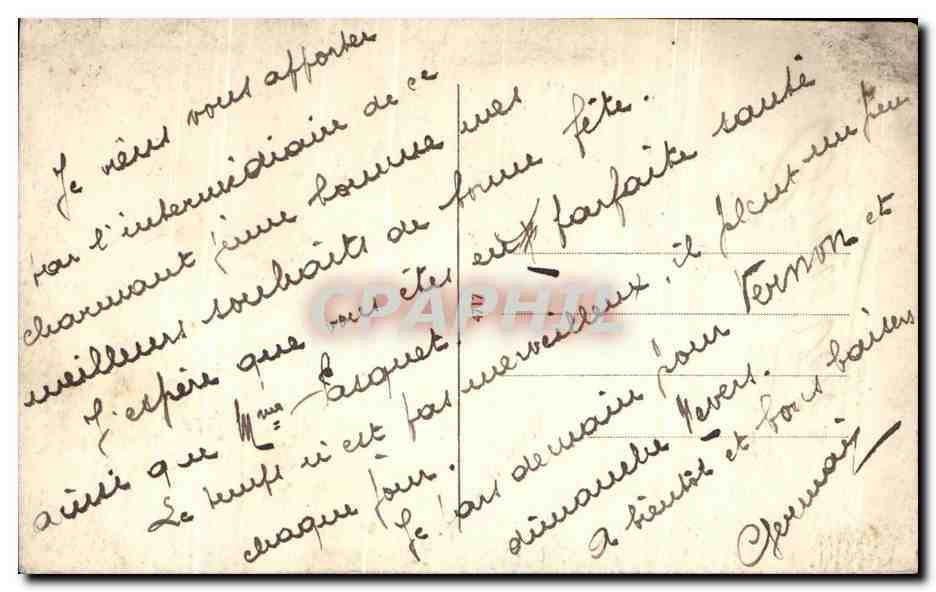 Je viens vous apporter
par l'intermédiaire de ce
charmant jeune homme mes
meilleurs souhaits de bonne fête.
J'espère que vous êtes en parfaite santé
ainsi que Mme Pasquet.
Le temps n'est pas merveilleux, il pleut un peu
chaque jour.
Je pars demain pour Vernon et
dimanche Nevers.
A bientôt et bons baisers
Germain
CPAPHIL